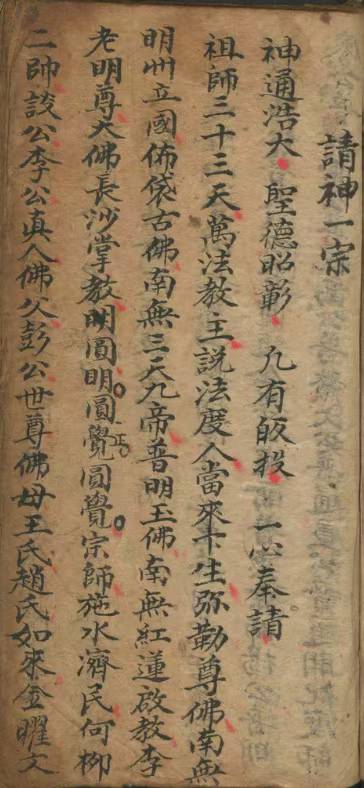 請神一宗
神通浩大聖德昭彰凡有皈投一心奉請
祖師三十三天萬法教主說法度人當來下生弥勒尊佛南無
明州立國佈袋古佛南無三天九帝普明玉佛南無紅蓮啟教李
老明尊大佛長沙掌教明圓明圓覺正圓覺宗師施水濟民何柳
二帥談公李公真人佛父彭公世尊佛母王氏趙氏如來金曜文